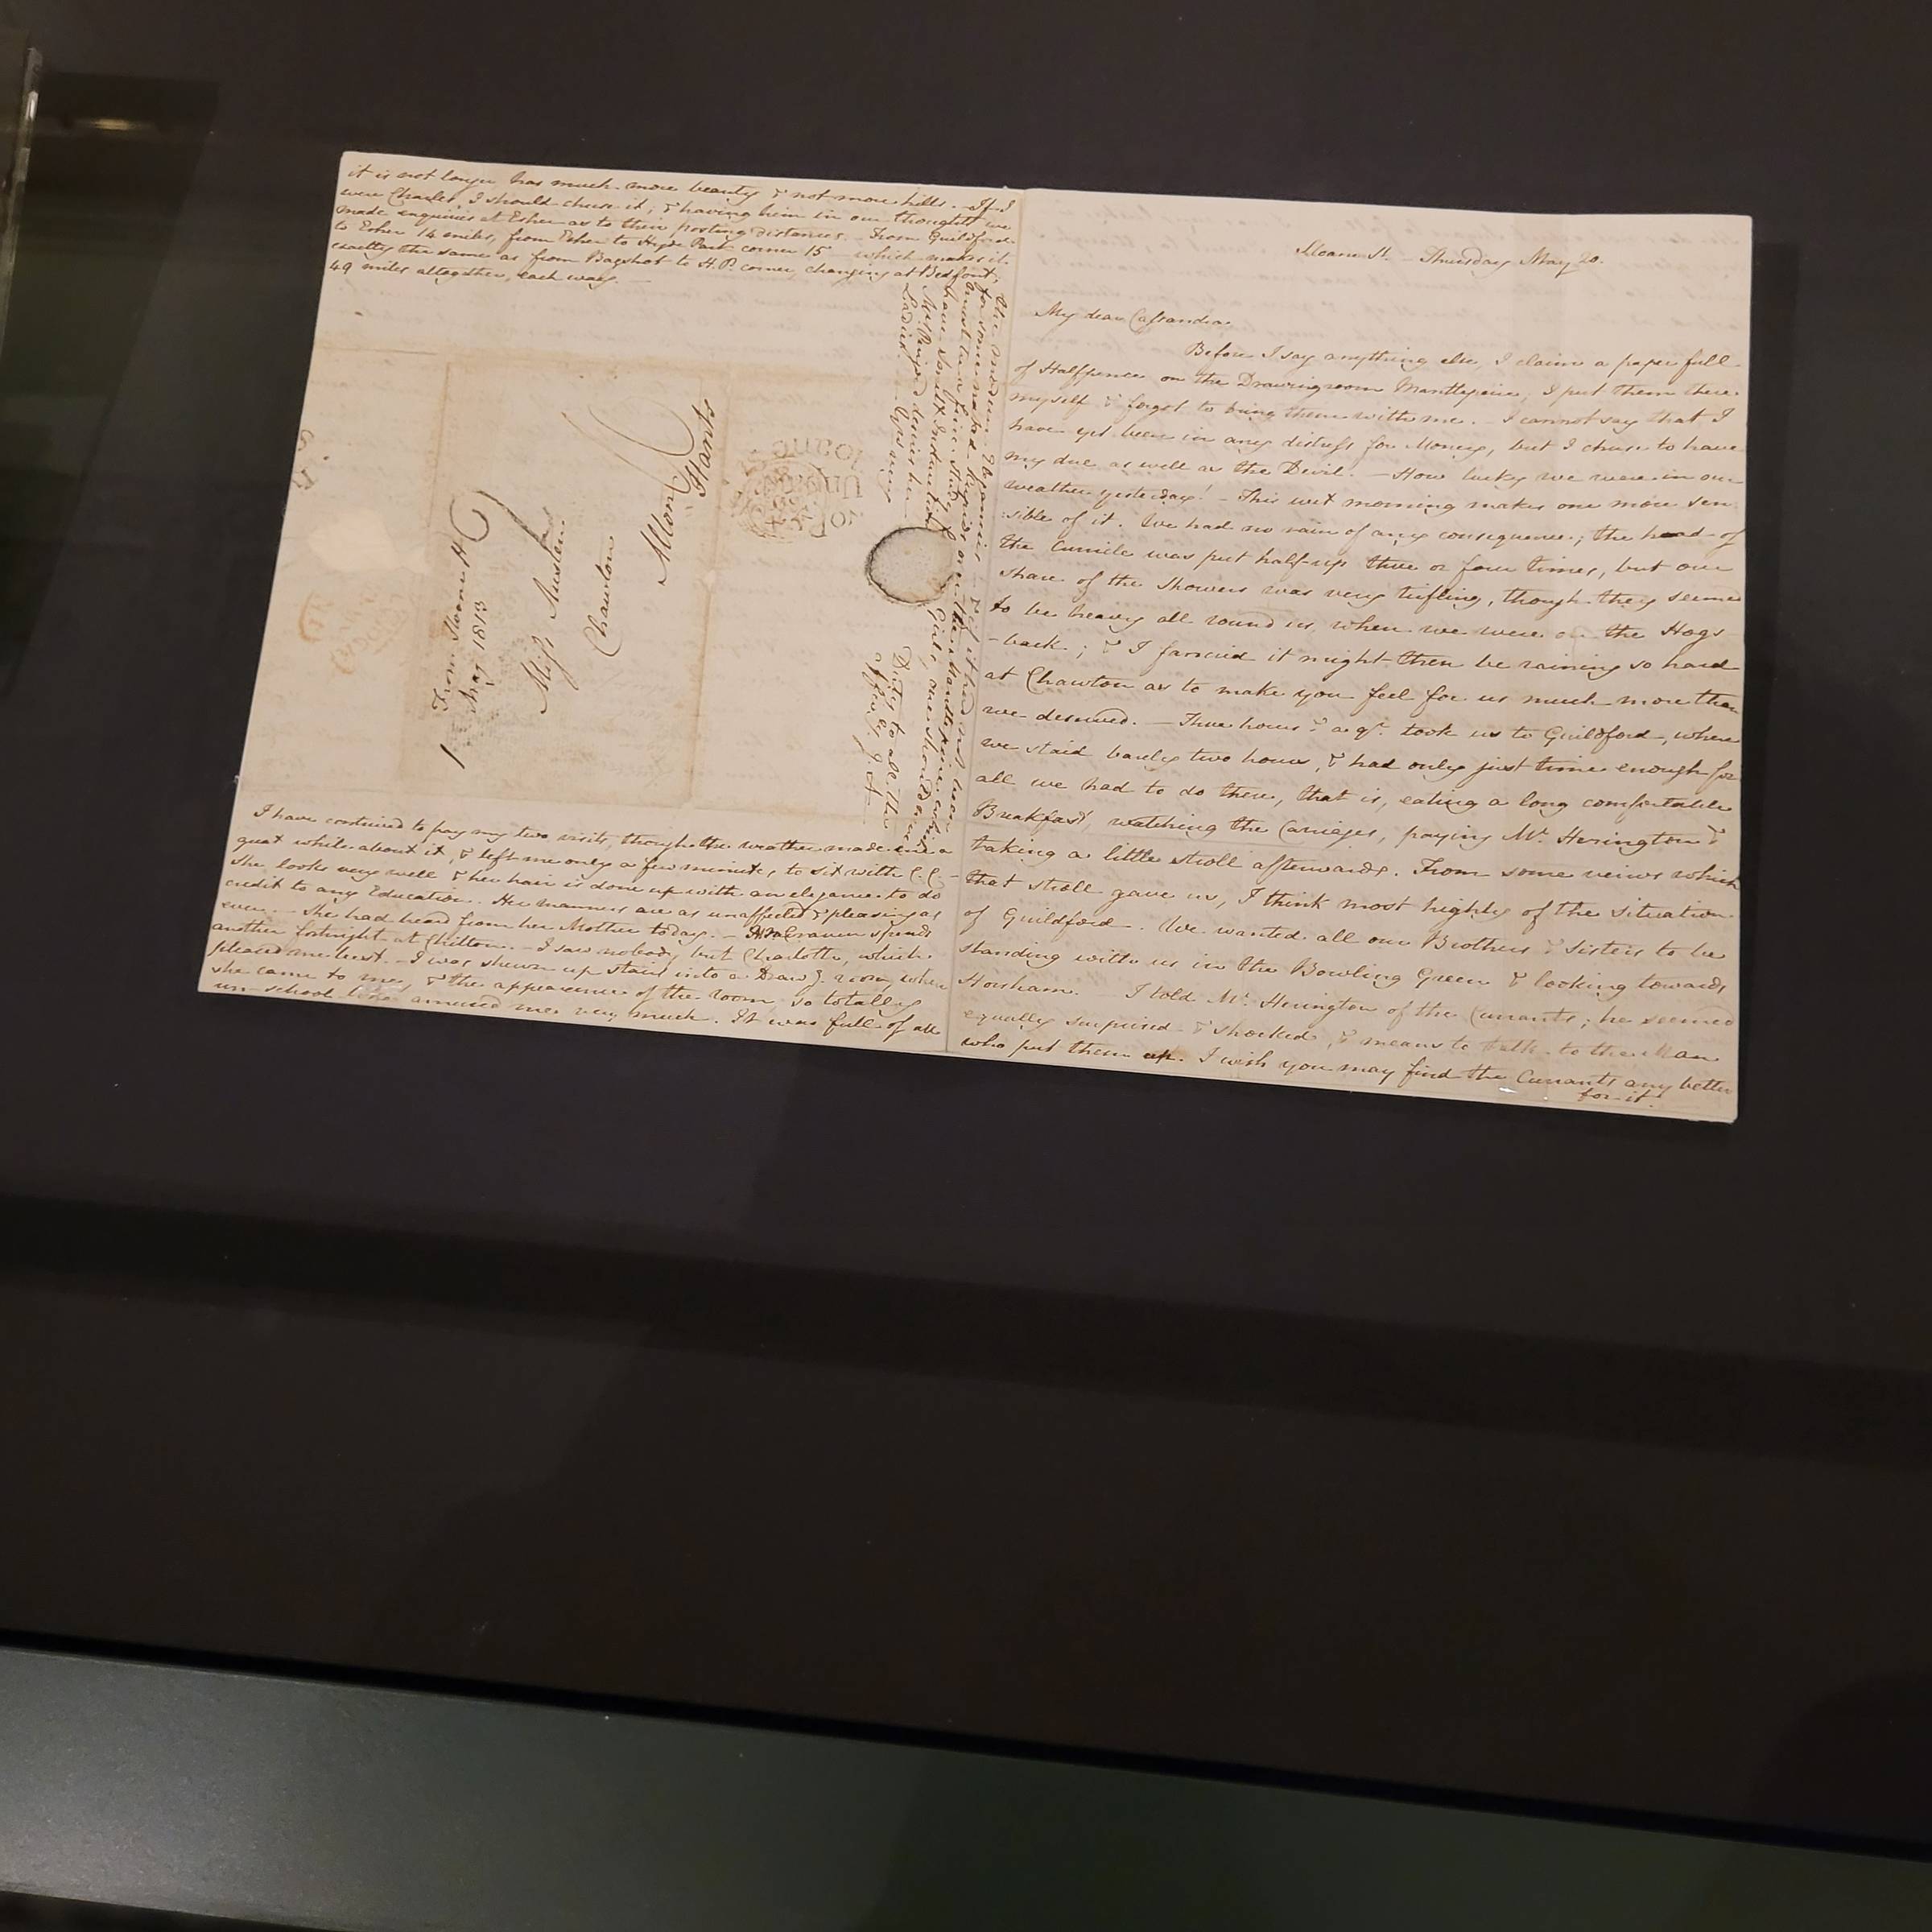 it is not longer has much more beauty & not more hills. - If I
were Charles, I should chuse it; & having him in our thoughts we
made enquiries at Esher as to their posting distances. - From Guildford
to Esher 14 miles, from Esher to Hyde Park corner 15 - which makes it
exactly the same as from Bagshot to H. P. corner, changing at Bedfont,
49 miles altogether, each way. -
From Sloane St
May 1813
Miss Austen
Chawton
Alton
Hants
the modern Elegancies - & if it had not been
for some naked Cupids over the Mantlepeice, which
must be a fine study for Girls, one should never
have smelt Instruction.
Mrs Perigord desires her
Duty to all the
Ladies. - Yrs very
affecly J. A.
I have contrived to pay my two visits, though the weather made me a
great while about it, & left me only a few minutes to sit with C. C. -
She looks very well & her hair is done up with an elegance to do
credit to any Education. Her manners are as unaffected & pleasing as
ever. - She had heard from her Mother today. - Mrs Craven spends
another fortnight at Chilton. - I saw nobody but Charlotte, which
pleased me best. - I was shewn up stairs into a Drawg room, where
she came to me, & the appearance of the room, so totally
un-school-like, amused me very much. It was full of all
Sloane St. - Thursday May 20.
My dear Cassandra
Before I say anything else, I claim a paper full
of Halfpence on the Drawingroom Mantlepeice; I put them there
myself & forgot to bring them with me. - I cannot say that I
have yet been in any distress for Money, but I chuse to have
my due as well as the Devil. - How lucky we were in our
weather yesterday! - This wet morning makes one more sen
:sible of it. We had no rain of any consequence; the head of
the Curricle was put half-up three or four times, but our
share of the Showers was very trifling, though they seemed
to be heavy all round us, when we were on the Hogs
-back; & I fancied it might then be raining so hard
at Chawton as to make you feel for us much more than
we deserved. - Three hours & a qr. took us to Guildford, where
we staid barely two hours, & had only just time enough for
all we had to do there, that is, eating a long comfortable
Breakfast, watching the Carriages, paying Mr. Herington &
taking a little stroll afterwards. From some veiws which
that stroll gave us, I think most highly of the situation
of Guildford. We wanted all our Brothers & Sisters to be
standing with us in the Bowling Green & looking towards
Horsham. - I told Mr. Herington of the Currants; he seemed
equally surprised & shocked, & means to talk to the Man
who put them up. I wish you may find the Currants any better
for it.